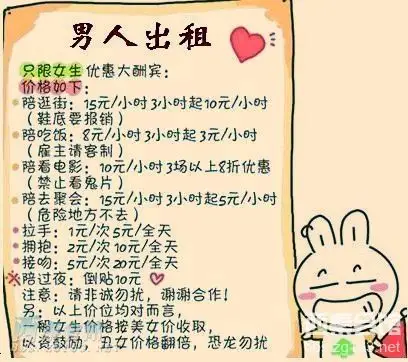 男人出租
只限女生 优惠大酬宾：
价格如下：
陪逛街：15元/小时 3小时起10元/小时
（鞋底要报销）
陪吃饭：8元/小时 3小时起3元/小时
（雇主请客制）
陪看电影：10元/小时 3场以上8折优惠
（禁止看鬼片）
陪去聚会：15元/小时 3小时起5元/小时
（危险地方不去）
拉手：1元/次 5元/全天
拥抱：2元/次 10元/全天
接吻：5元/次 20元/全天
※陪过夜：倒贴10元
注意：请非诚勿扰，谢谢合作！
另：以上价位均对而言，
一般女生价格按美女价收取，
以资鼓励，丑女价格翻倍，恐龙勿扰